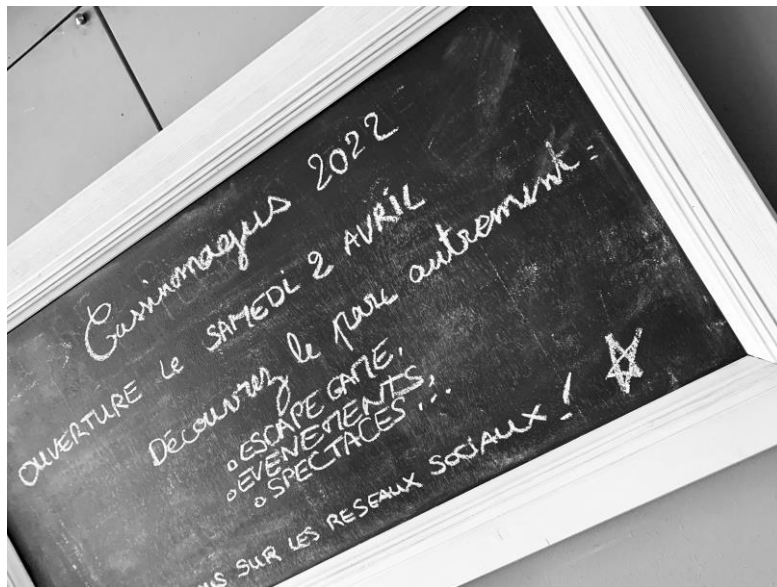 Cassinomagus 2022
OUVERTURE LE SAMEDI 2 AVRIL
Découvrez le parc autrement :
ESCAPE GAME,
EVENEMENTS,
SPECTACLES...
SUR LES RESEAUX SOCIAUX !